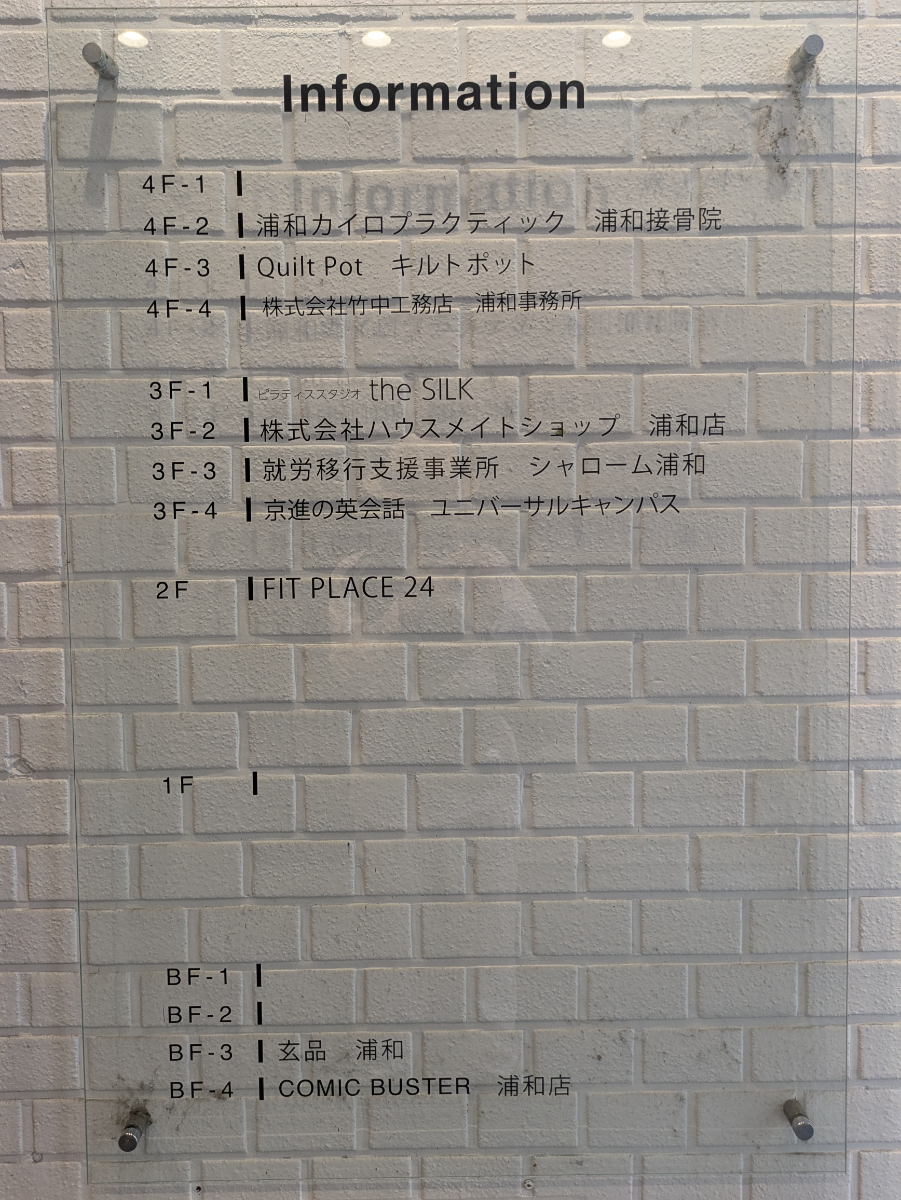 Information
4F-1
4F-2 浦和カイロプラクティック 浦和接骨院
4F-3 Quilt Pot キルトポット
4F-4 株式会社竹中工務店 浦和事務所
3F-1 ピラティススタジオ the SILK
3F-2 株式会社ハウスメイトショップ 浦和店
3F-3 就労移行支援事業所 シャローム浦和
3F-4 京進の英会話 ユニバーサルキャンパス
2F FIT PLACE 24
1F
BF-1
BF-2
BF-3 玄品 浦和
BF-4 COMIC BUSTER 浦和店